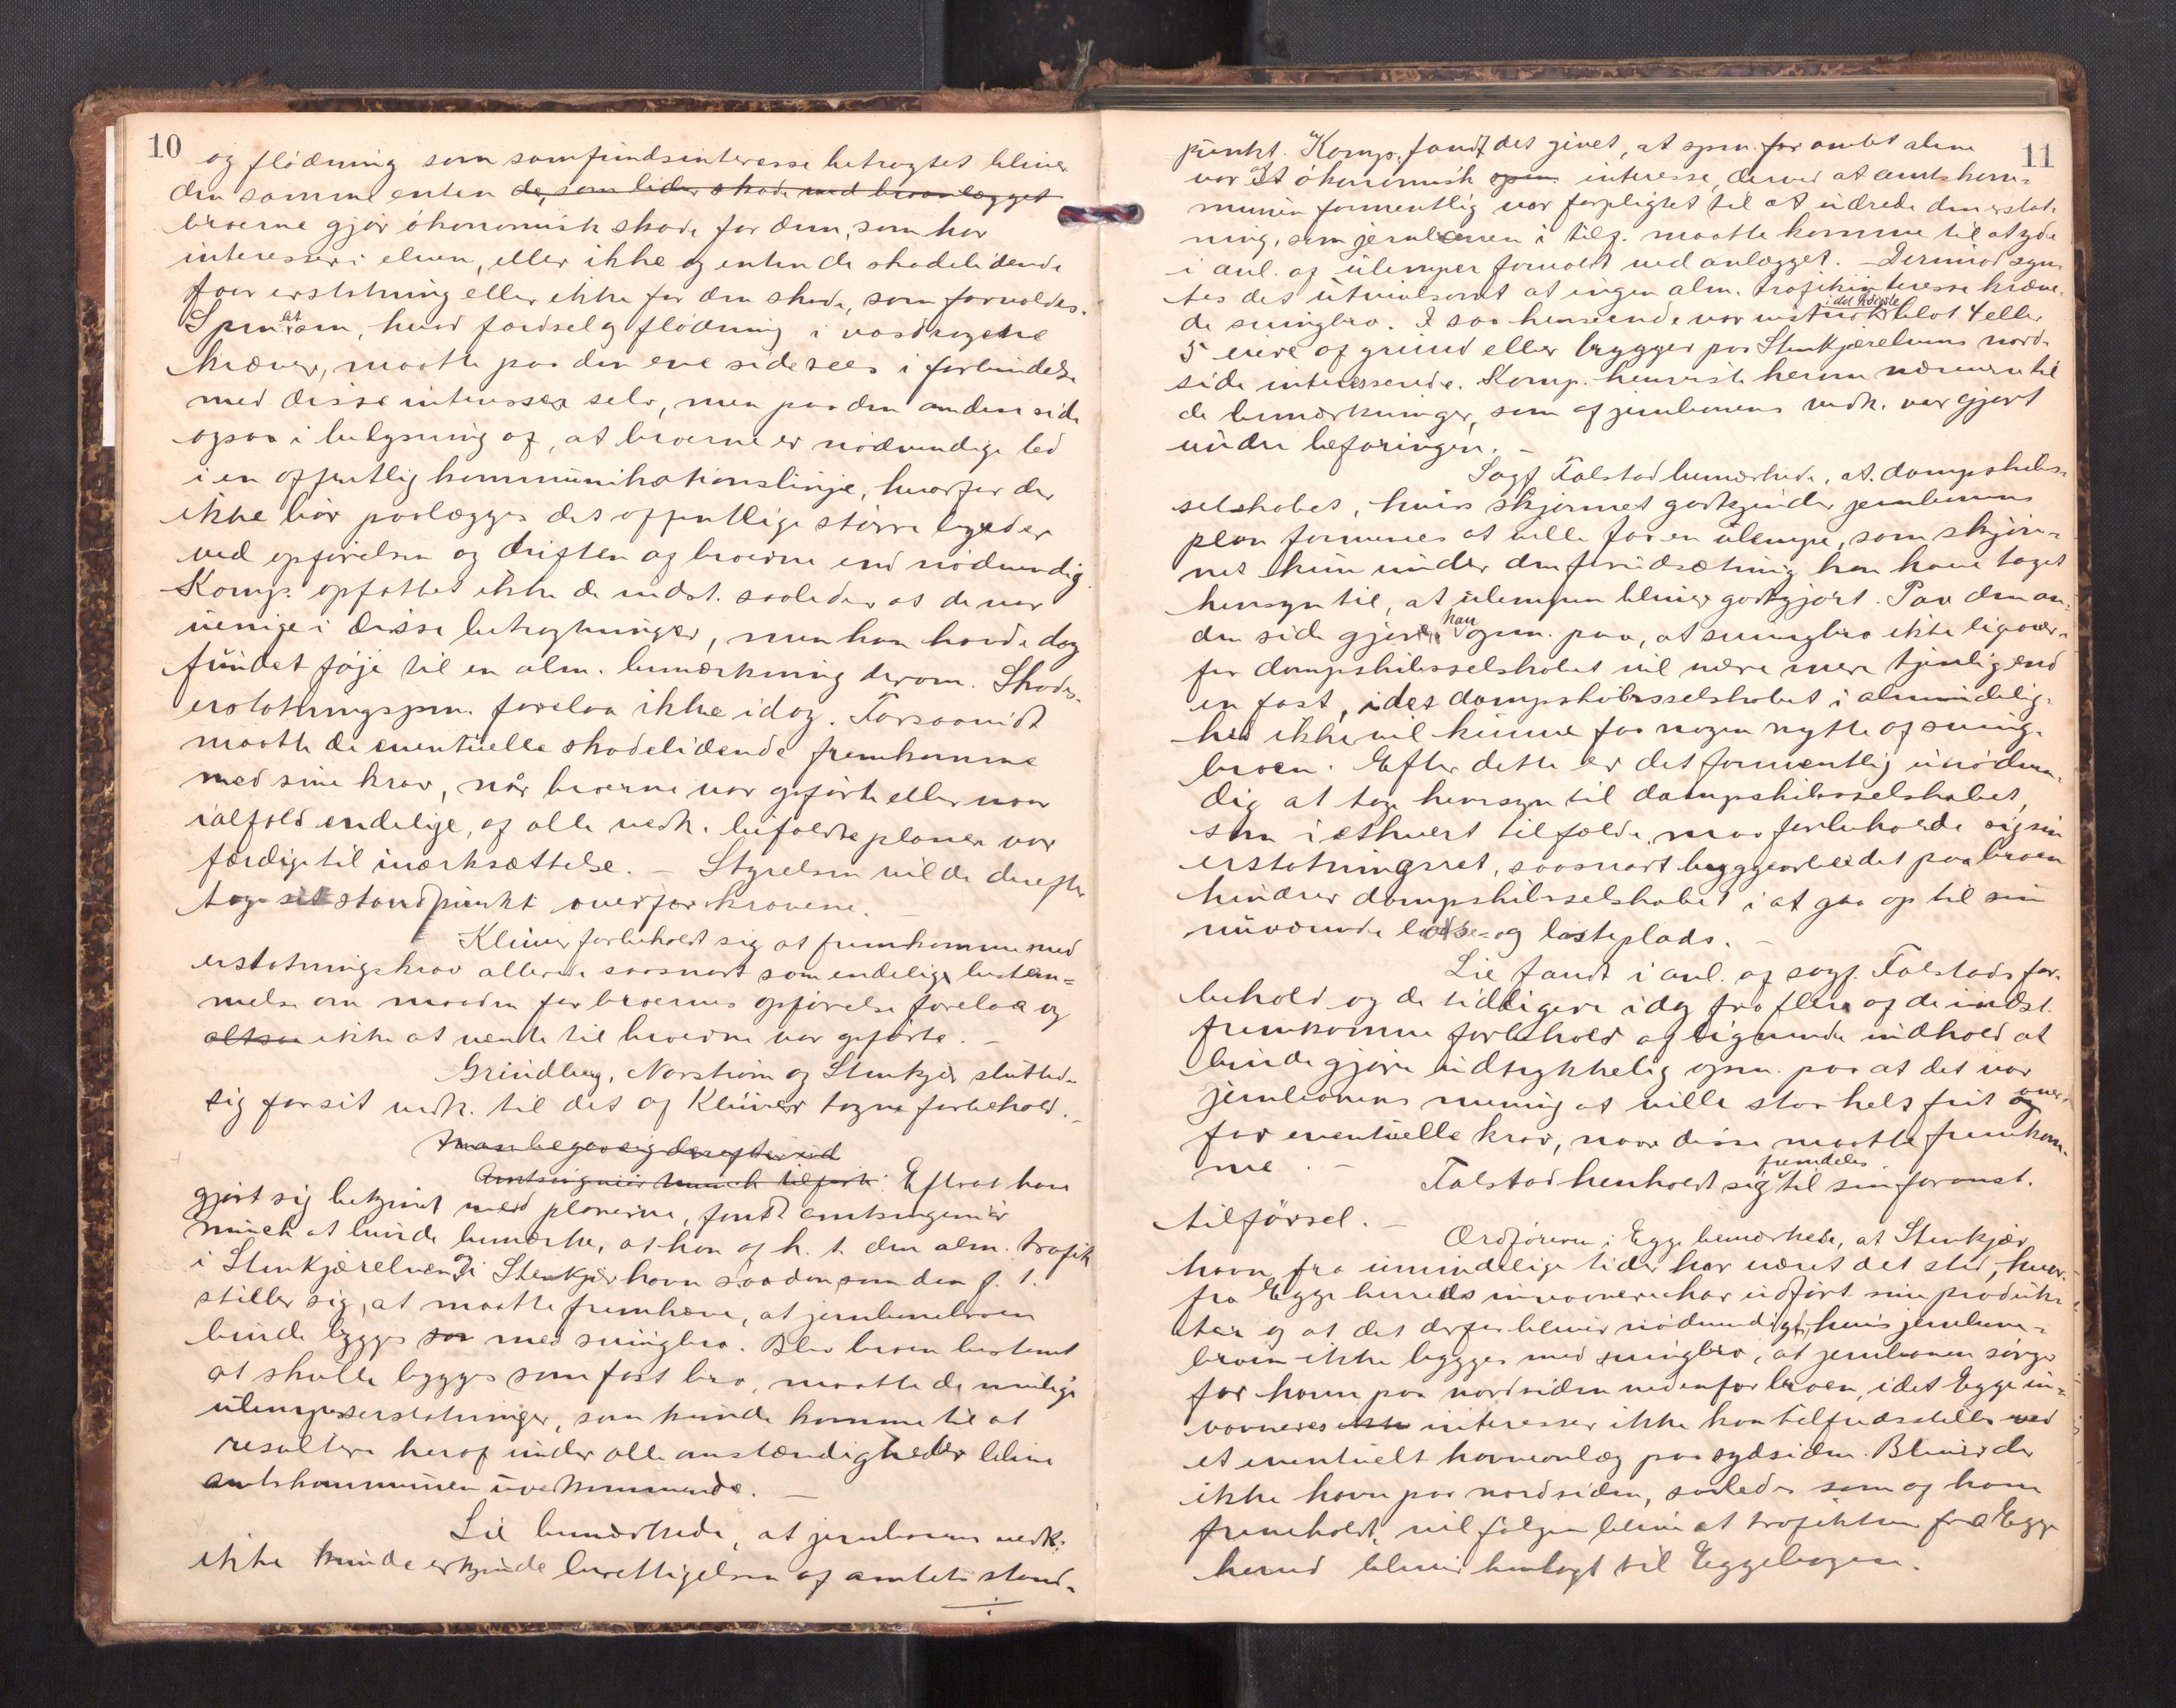 10
og flödning som samfundsinteresse betragtet bliver
den samme enten de, som lider skade ved broanlægget
broerne gjør økonomisk skade for dem, som har
interesser i elven, eller ikke og enten de skadelidende
faar erstatning eller ikke for den skade, som forvoldes.
Spm. at om, hvad færdsel og flödning i vasdragene
kræver, maatte paa den ene side sees i forbindelse
med disse interesser selv, men paa den anden side
ogsaa i belysning af, at broerne er nödvendige led
i en offentlig kommunikationslinje, hvorfor der
ikke bör paalægges det offentlige större byrder
ved opförelsen og driften af broerne end nödvendig.
Komp. opfattet ikke de indst. saaledes at de var
uenige i disse betragtninger, men han havde dog
fundet föje til en alm. bemærkning derom. Skades-
erstatningspm. forelaa ikke idag. Forsaavidt
maatte de eventuelle skadelidende fremkomme
med sine krav, når broerne var opförte eller naar
ialfald endelige, af alle vedk. bifaldte planer var
færdige til iværksættelse. - Styrelsen vilde derefter
tage sit standpunkt overfor kravene. -
Klüver forbeholdt sig at fremkomme med
erstatningskrav allerede saasnart som endelige bestem=
melse om maaden for broernes opförelse forelaa og
altsaa ikke at vente til broerne var opförte. -
Grindberg, Norström og Stenkjær sluttede
sig forsit vedk. til det af Klüver tagne forbehold. -
Man begav sig derefter ud
Amtsingeniör Munch tilførte: Efter at have
gjort sig bekjendt med planerne, fandt amtsingeniør
Munch at burde bemærke, at han af h. t. den alm. trafik
i Stenkjærelven og i Stenkjær havn saadan som den p. t.
stiller sig, at maatte fremhæve, at jernbanebroen
burde bygges saa med svingbro. Blev broen bestemt
at skulle bygges som fast bro, maatte de mulige
ulempeserstatninger, som kunde komme til at
resultere heraf under alle omstændigheder blive
amtskommunen uvedkommende. -
Lie bemærkede, at jernbanens vedk.
ikke kunde erkjende berettigelsen af amtets stand-
11
punkt. Komp. fandt det givet, at spm. for amtet alene
var et ökonomisk spm. interesse, derved at amtskom=
munen formentlig var forpligtet til at udrede den erstat-
ning, som jernbanen i tilf. maatte komme til at yde
i anl. af ulemper forvoldt ved anlægget. - Derimod syn-
tes det utvivlsomt at ingen alm. trafikinteresse kræve-
de svingbro. I saa henseende var vistnok i det höieste blot 4 eller
5 eiere af grund eller brygger paa Stenkjærelvens nord-
side interesserede. Komp. henviste herom nærmere til
de bemærkninger, som af jernbanens vedk. var gjort
under befaringen. -
Sagf Falstad bemærkede, at dampskibs-
selskabet, hvis skjönnet godkjender jernbanens
plan formenes at ville faa en ulempe, som skjön-
net kun under den forudsætning kan have taget
hensyn til, at ulempen bliver godtgjort. Paa den an-
den side gjøres han opm. paa, at svingbro ikke ligeover-
for dampskibsselskabet vil være mere tjenlig end
en fast, idet dampskibsselskabet i almindelig-
hed ikke vil kunne faa nogen nytte af sving-
broen. Efter dette er det formentlig unödven-
dig at tage hensyn til dampskibsselskabet,
som i ethvert tilfælde maa forbeholde sig sin
erstatningsret, saasnart byggearbeidet paa broen
hindrer dampskibsselskabet i at gaa op til sin
nuværende losse- og lasteplads. -
Lie fandt i anl. af sagf. Falstads for-
behold og de tidligere idag fra flere af de indst.
fremkomne forbehold af lignende indhold at
burde gjöre udtrykkelig opm. paa at det var
jernbanens mening at ville staa helt frit og over-
for eventuelle krav, naar disse maatte fremkom-
me. -
Falstad henholdt sig fremdeles til sin foranst.
tilförsel. -
Ordföreren i Egge bemærkede, at Stenkjær
havn fra umindelige tider har været det sted, hvor-
fra Egge herreds indvaanere har udfört sine produk-
ter og at det derfor bliver nödvendigt, hvis jernbane-
broen ikke bygges med svingbro, at jernbanen sörge
for havn paa nordsiden nedenfor broen, idet Egge in=
vaaneres interesser ikke kan tilfredsstilles ved
et eventuelt havneanlæg paa sydsiden. Bliver der
ikke havn paa nordsiden, saaledes som af ham
fremholdt, vil fölgen blive at trafikken fra Egge
herred bliver henlagt til Eggebogen.